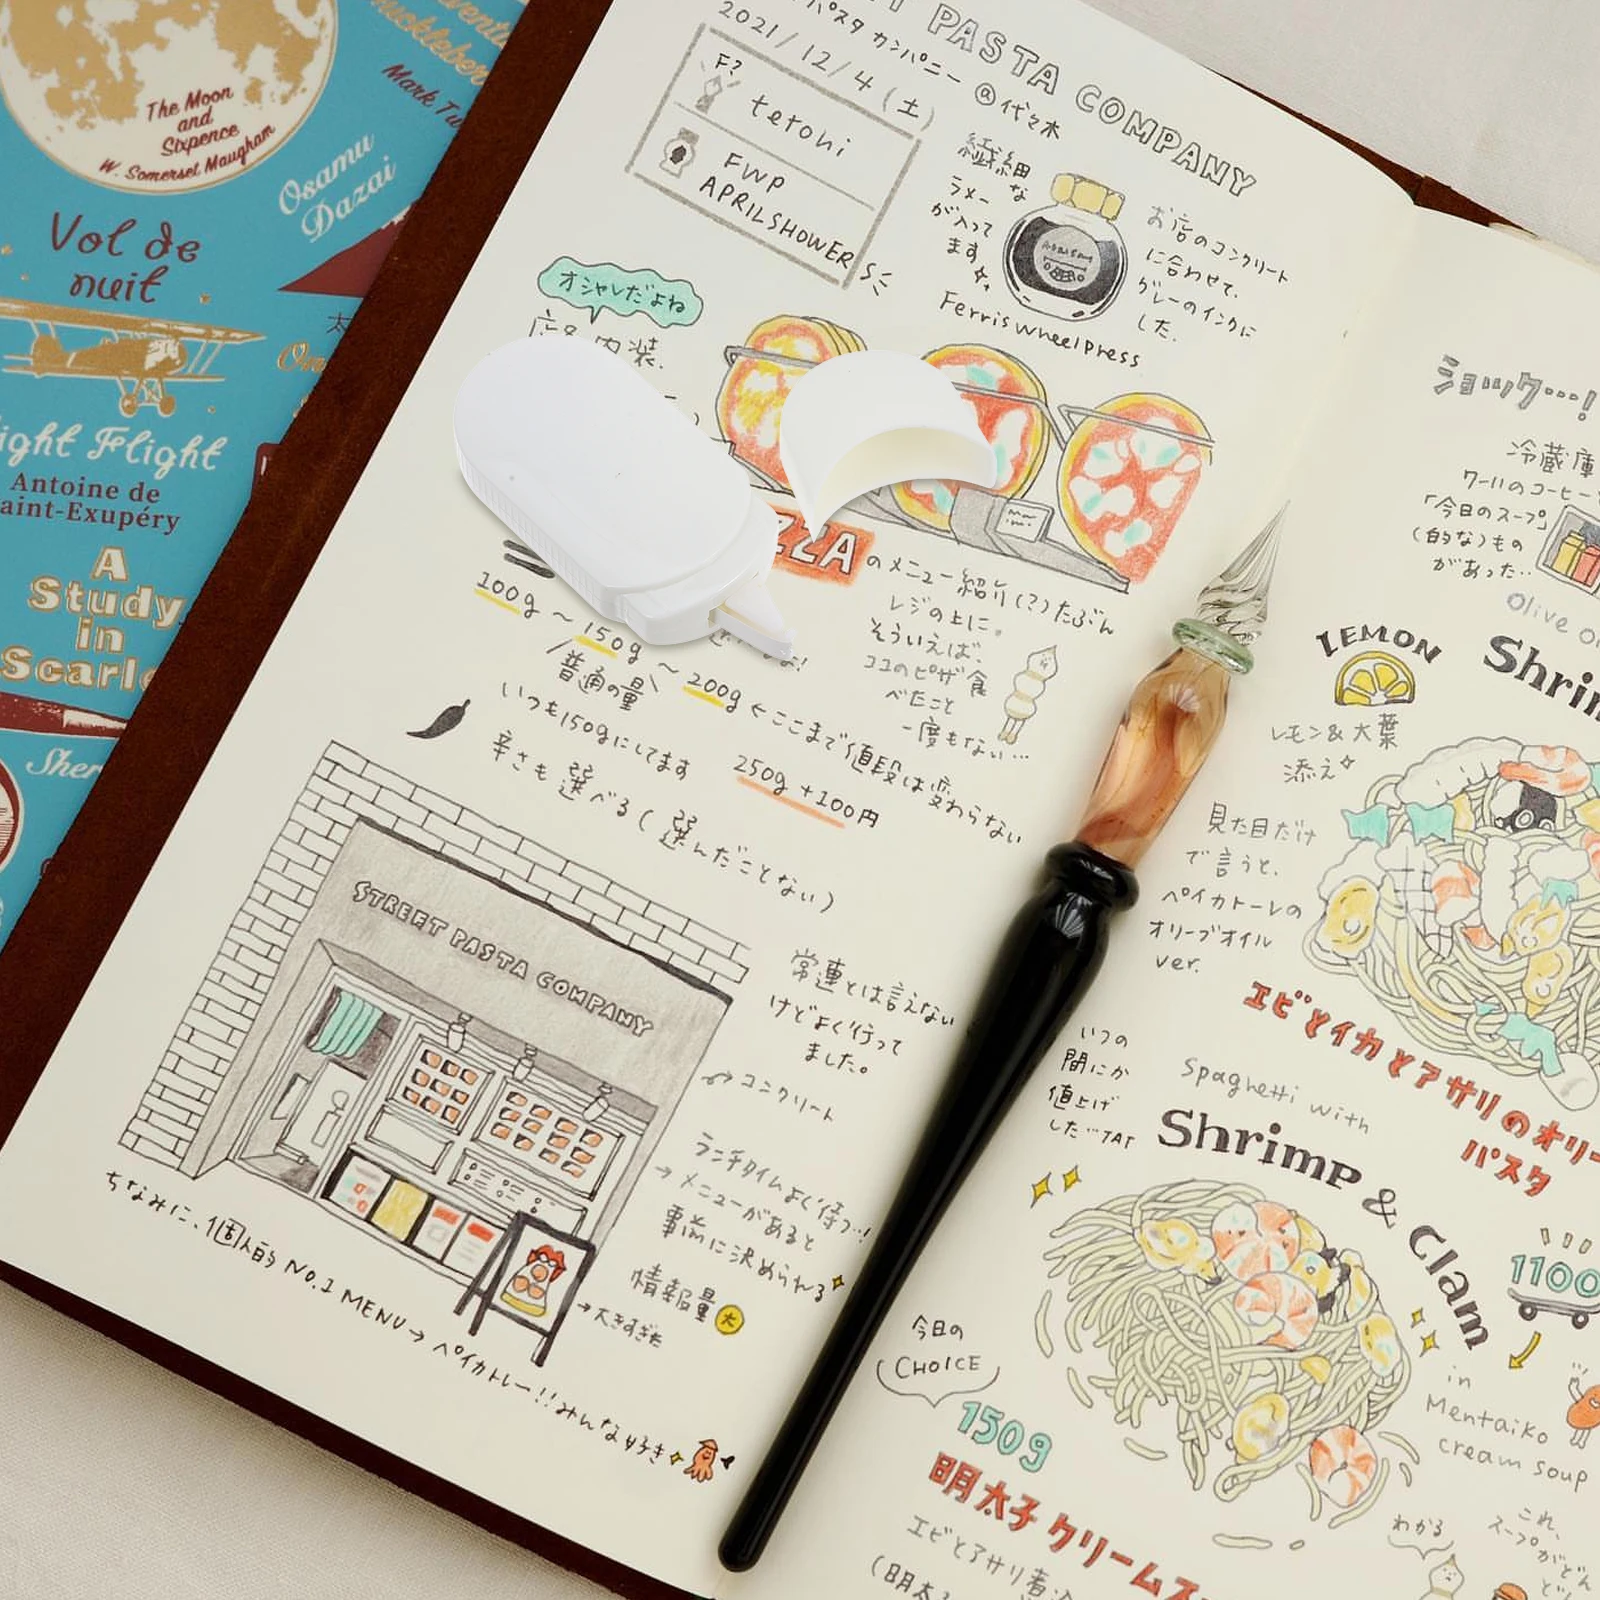 The Moon
and
Sixpence
W. Somerset Maugham
Mark Tw
Osamu
Dazai
Vol de
nuit
ight Flight
Antoine de
aint-Exupéry
A
Study
in
Scarle
Sher
PASTA COMPANY
パスタ カンパニー @代々木
2021/12/4(土)
F?
tetohi
FWP
APRILSHOWERS
繊細
な
ラメー
が入って
ます
Ferriswheelpress
お店のコンクリート
に合わせて、
グレーのインクに
した。
オシャレだよね
内装.
ZZA のメニュー紹介(?)たぶん
レジの上に。
そういえば、
ココのピザ食
べたこと
一度もない…
100g ~ 150g ~ 200g ←ここまで値段は変わらない
普通の量
いつも150gにしてます
250g +100円
辛さも選べる(選んだことない)
STREET PASTA COMPANY
常連とは言えない
けどよく行って
ました。
→コンクリート
ランチタイムよく待つ…!
→メニューがあると
事前に決められる
情報量 大
→大きすぎた
ちなみに、個人的 NO.1 MENU→ ペイカトレー!!みんな好き
ショック…!
冷蔵庫
「今日のスープ」
(的な)もの
があった…
LEMON
レモン&大葉
添え
Shrim
見た目だけ
で言うと、
ペイカトーレの
オリーブオイル
ver.
エビとイカとアサリのオリー
パスタ
いつの
間にか
値上げ
した…TAT
Spaghetti with
Shrimp & Clam
1100
in
Mentaiko
cream soup
今日の
CHOICE
150g
明太子クリームス
エビとアサリ
(明太
わかる
これ、
スープがどん